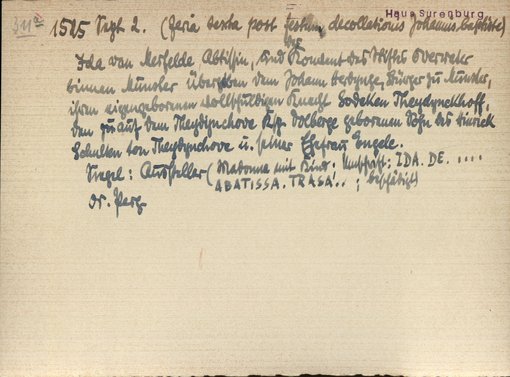 Haus Surenburg
1525 Sept 2. (feria sexta post festum decollationis Johannis baptiste)
Ida van Merfelde Abtissin, und Konvent des Stiftes Overwater
binnen Münster übergeben dem Johann Bürger zu Münster,
ihren eigengeborenen vollschuldigen Knecht Godeken Theydynckhoff,
den zu auf dem Theydynchove Ksp. Dolberge geborenen Sohn des Hinrick
Schulten ton Theydynchove u. seiner Ehefrau Engele.
Siegel: Aussteller (Madonna mit Kind; Umschrift: IDA. DE. ....
ABATISSA. TRASA..; beschädigt)
Or. Perg.